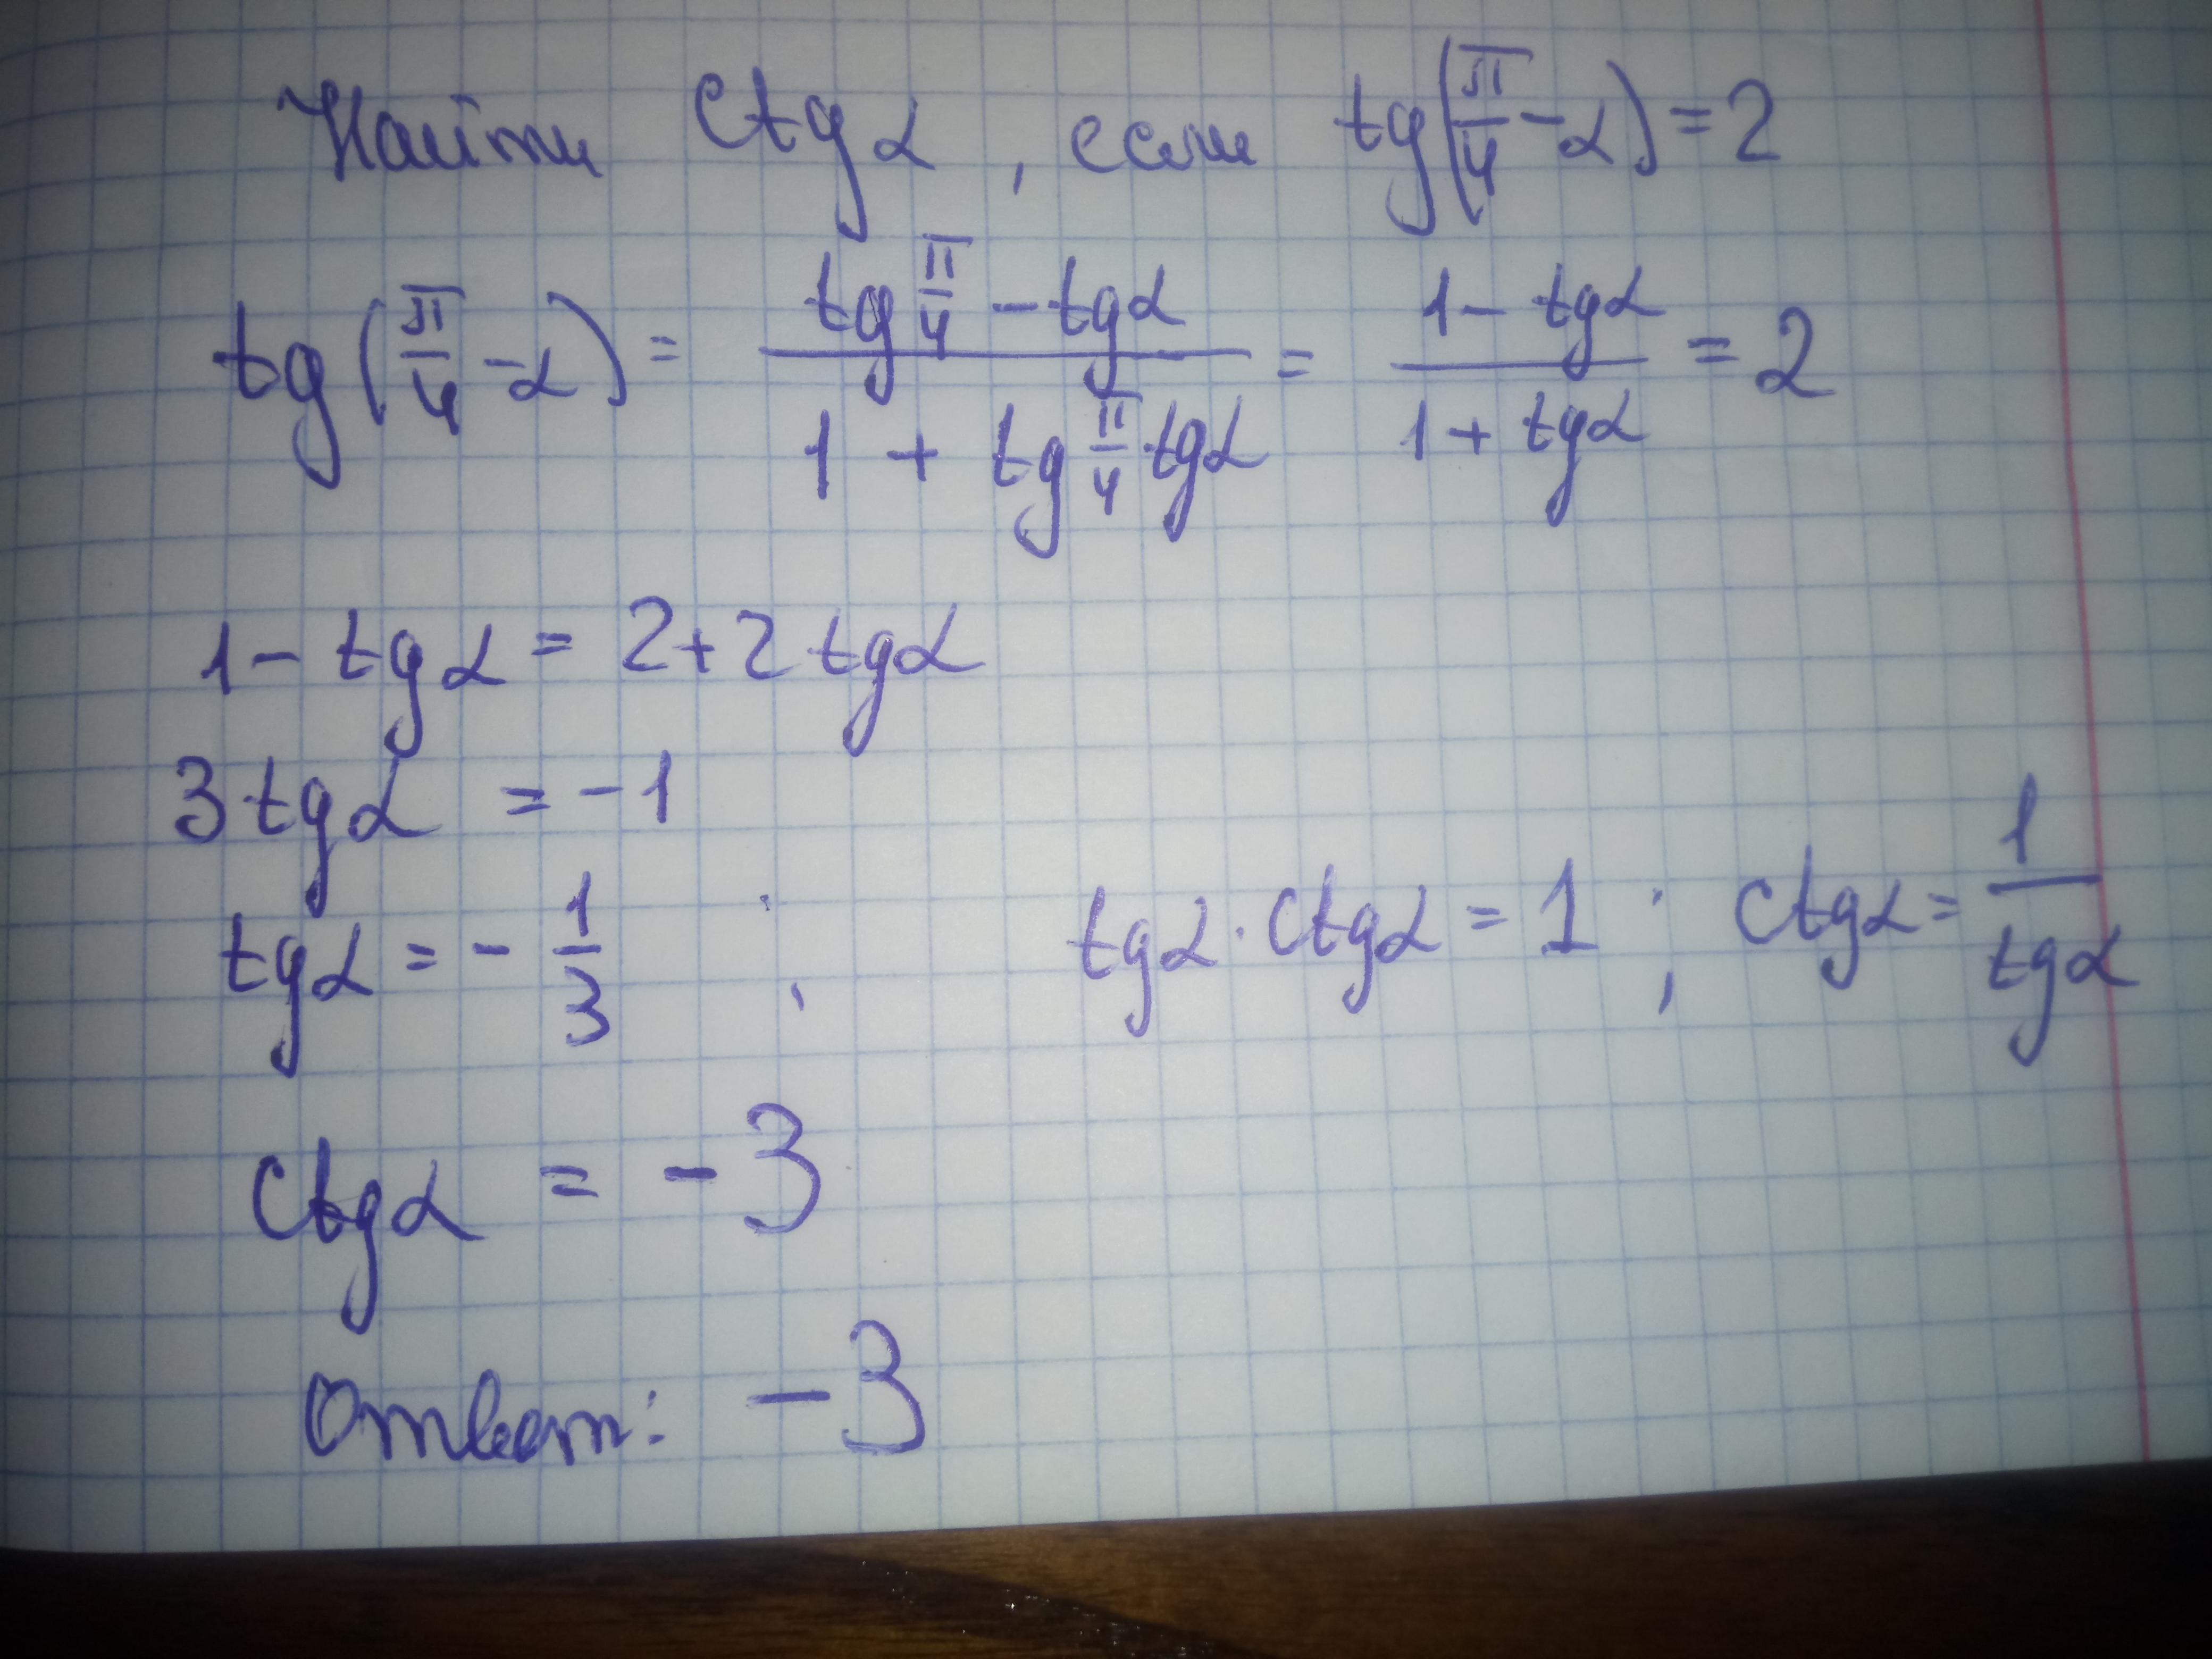 Найти ctgα, если tg(π/4 - α) = 2
tg(π/4 - α) = (tg π/4 - tgα)/(1 + tg π/4 tgα) = (1 - tgα)/(1 + tgα) = 2
1 - tgα = 2 + 2 tgα
3 tgα = -1
tgα = - 1/3 ; tgα · ctgα = 1 ; ctgα = 1/tgα
ctgα = -3
Ответ: -3